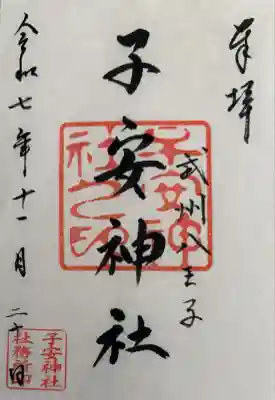 奉拝
武州八王子
子安神社
令和七年十一月二十日
子安神社之印
子安神社
社務所印